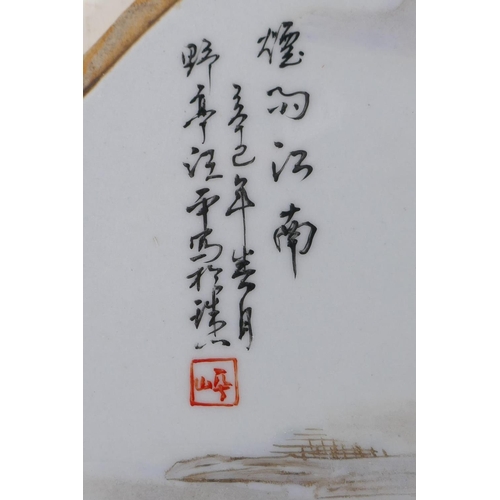 煙雨江南
辛巳年春月
野亭汪平寫於珠山